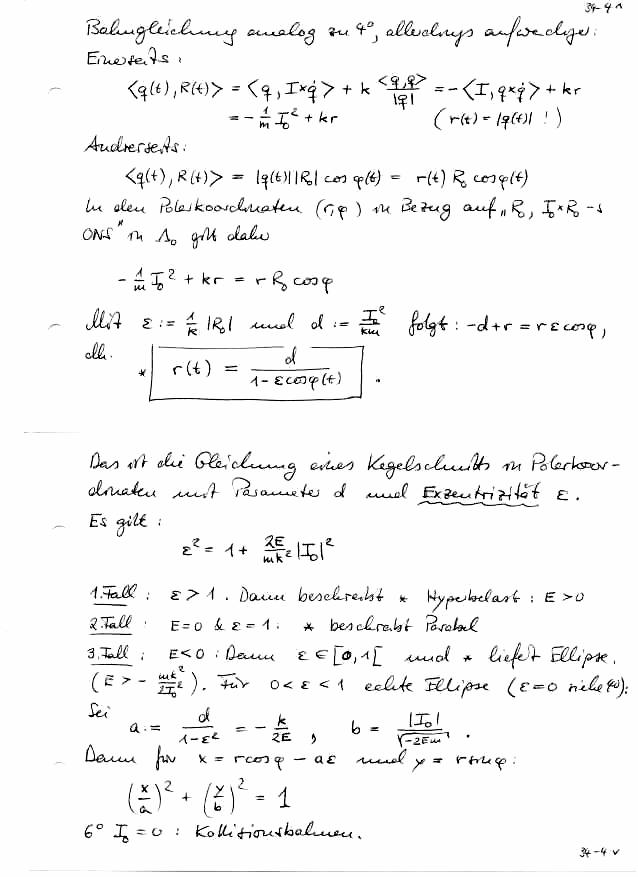 34-4^
Bahngleichung analog zu 4°, allerdings aufwendiger:
Einerseits:
⟨q(t), R(t)⟩ = ⟨q, I×q̇⟩ + k ⟨q,q⟩/|q| = -⟨I, q×q̇⟩ + kr
= -1/m I₀² + kr (r(t) = |q(t)| !)
Andrerseits:
⟨q(t), R(t)⟩ = |q(t)||R₀| cos φ(t) = r(t) R₀ cosφ(t)
In den Polarkoordinaten (r,φ) in Bezug auf „R₀, I₀×R₀ -s
ONS" in Λ₀ gilt daher
-1/m I₀² + kr = r R₀ cosφ
Mit ε := 1/k |R₀| und d := I₀²/km folgt: -d+r = rε cosφ,
dh.
* r(t) = d/(1-εcosφ(t)) .
Das ist die Gleichung eines Kegelschnitts in Polarkoor-
dinaten mit Parameter d und Exzentrizität ε.
Es gilt:
ε² = 1 + 2E/mk² |I₀|²
1. Fall: ε > 1. Dann beschreibt * Hyperbelast: E > 0
2. Fall: E=0 & ε=1: * beschreibt Parabel
3. Fall: E<0: Dann ε ∈ [0,1[ und * liefert Ellipse.
(E > - mk²/2I₀²). Für 0<ε<1 echte Ellipse (ε=0 siehe 4°):
Sei a := d/(1-ε²) = -k/2E, b = |I₀|/√-2Em .
Dann für x = rcosφ - aε und y = rsinφ:
(x/a)² + (y/b)² = 1
6° I₀ = 0: Kollisionsbahnen.
34-4v